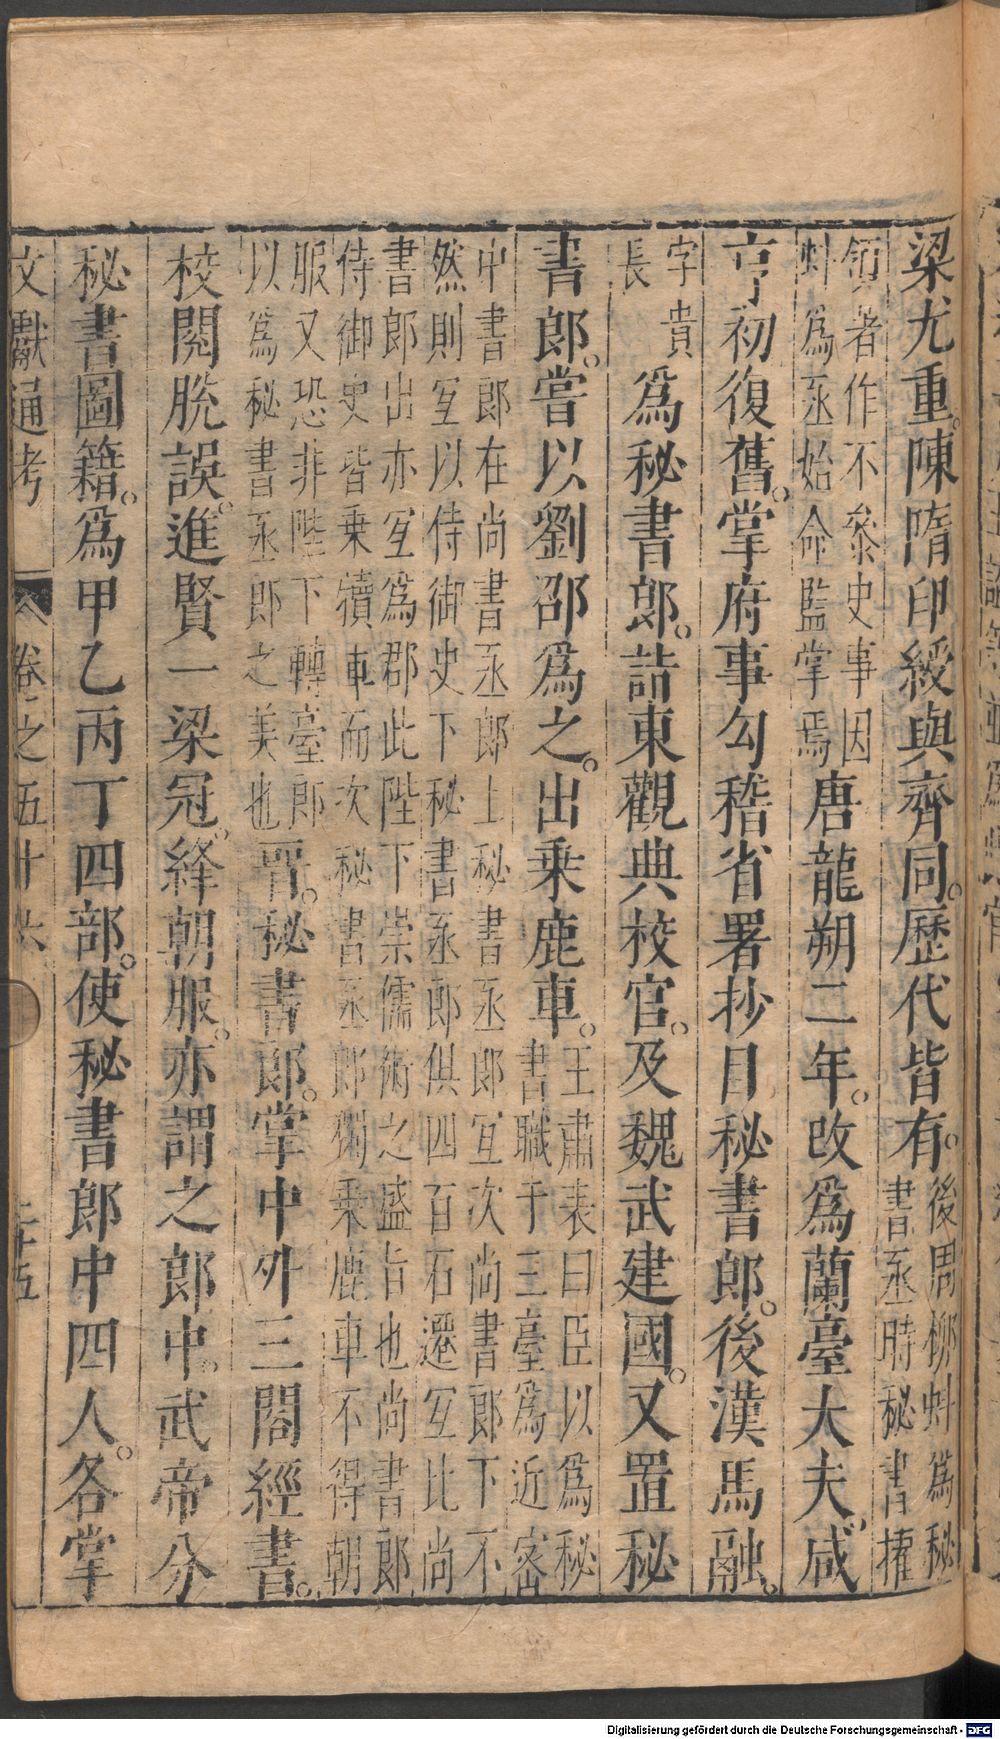 梁尤重。陳隋印綬與齊同。歷代皆有。後周柳蚪爲秘
書丞時秘書擢
領著作不叅史事因
蚪爲丞始命監掌焉唐龍朔二年。改爲蘭臺大夫。咸
亨初復舊。掌府事勾稽省署抄目秘書郎。後漢馬融。
字貴
長爲秘書郎。詣東觀典校官。及魏武建國。又置秘
書郎。嘗以劉邵爲之。出乘鹿車。王肅表曰臣以爲秘
書職于三臺爲近密
中書郎在尚書丞郎上秘書丞郎宜次尚書郎下不
然則宜以侍御史下秘書丞郎俱四百石遷宜比尚
書郎出亦宜爲郡此陛下崇儒術之盛旨也尚書郎
侍御史皆乘犢車而次秘書丞郎獨乘鹿車不得朝
服又恐非陛下轉臺郎
以爲秘書丞郎之美也晋。秘書郎。掌中外三閣經書。
校閱脫誤。進賢一梁冠。絳朝服。亦謂之郎中。武帝分
秘書圖籍。爲甲乙丙丁四部。使秘書郎中四人。各掌
文獻通考 卷之五十六 二十五
Digitalisierung gefördert durch die Deutsche Forschungsgemeinschaft - DFG